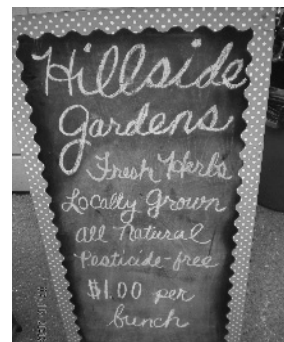 Hillside
Gardens
Fresh Herbs
Locally Grown
all natural
Pesticide-free
$1.00 per
bunch